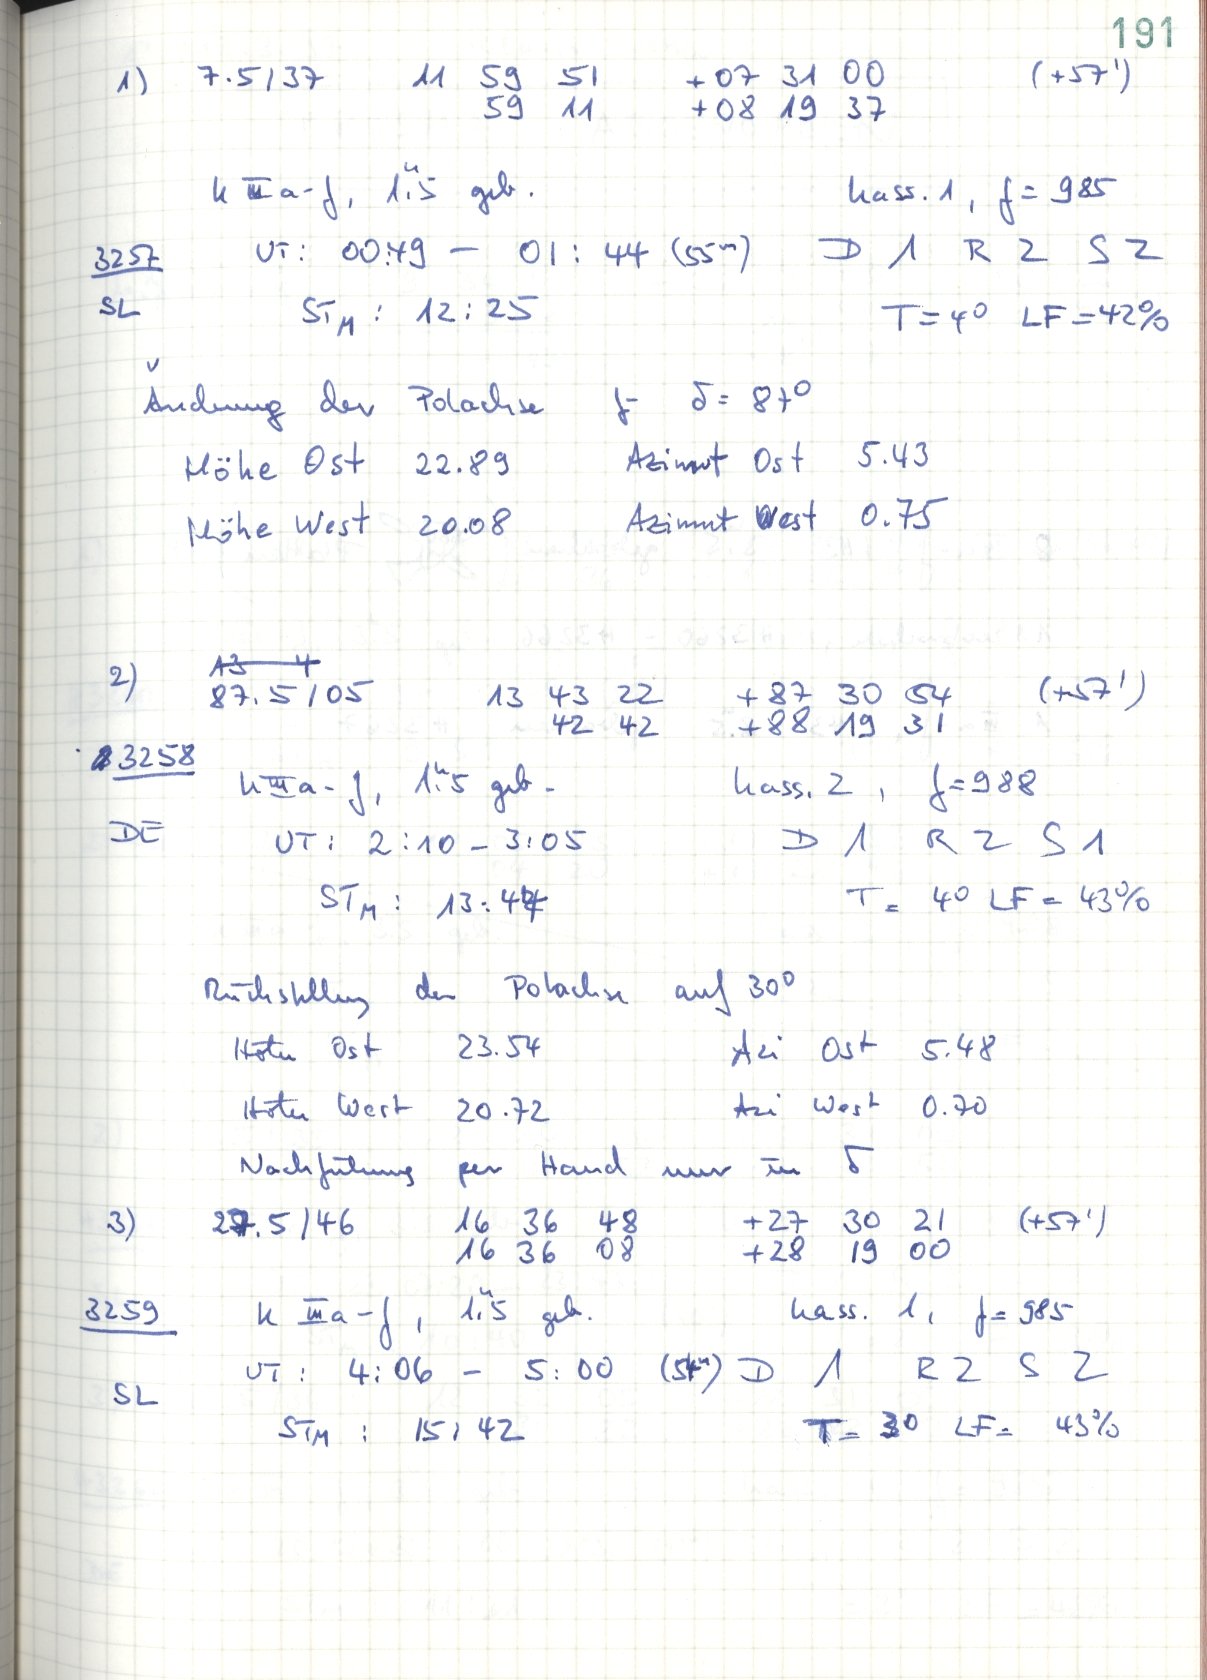 191
1) 7.5/37 11 59 51 +07 31 00 (+57')
59 11 +08 19 37
k IIIa-J, 1.ʰ5 geb. Kass. 1, f=985
3257 UT: 00:49 – 01:44 (55ᵐ) D 1 R 2 S 2
SL STM: 12:25 T=4° LF=42%
Änderung der Polachse f. δ= 87°
Höhe Ost 22.89 Azimut Ost 5.43
Höhe West 20.08 Azimut West 0.75
2) 87.5/05 13 43 22 +87 30 54 (+57')
42 42 +88 19 31
3258 k IIIa-J, 1.ʰ5 geb. Kass. 2, f=988
DE UT: 2:10 – 3:05 D 1 R 2 S 1
STM: 13:47 T= 4° LF= 43%
Rückstellung der Polachse auf 30°
Höhe Ost 23.54 Azi Ost 5.48
Höhe West 20.72 Azi West 0.70
Nachführung per Hand nur in δ
3) 27.5/46 16 36 48 +27 30 21 (+57')
16 36 08 +28 19 00
3259 k IIIa-J, 1.ʰ5 geb. Kass. 1, f=985
UT: 4:06 – 5:00 (54ᵐ) D 1 R 2 S 2
SL STM: 15:42 T= 3° LF= 43%